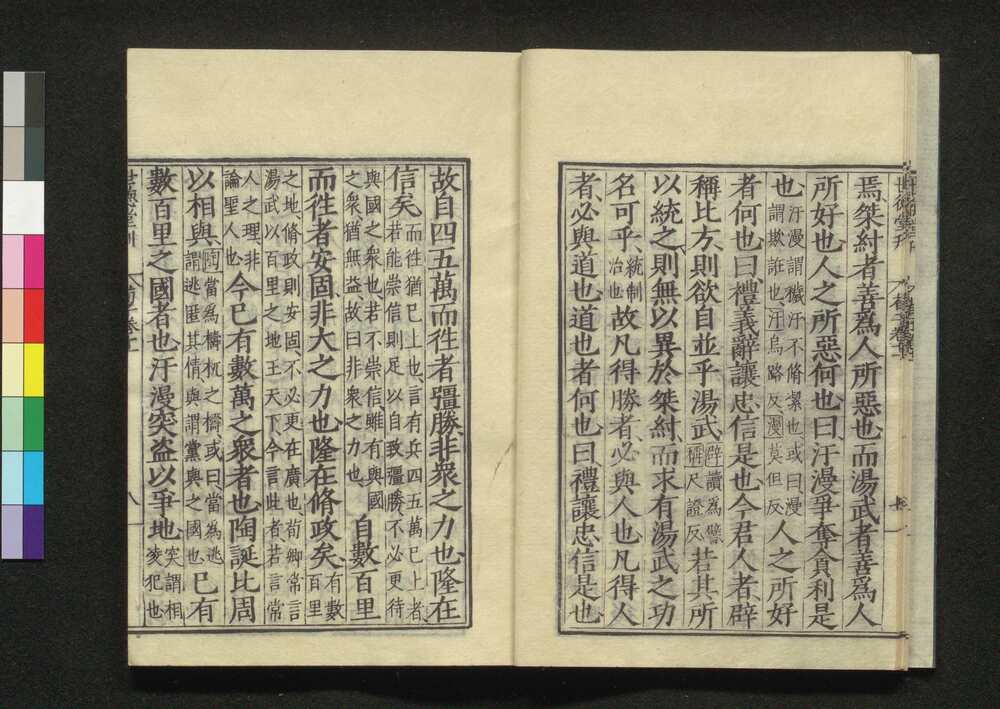 焉桀紂者善爲人所惡也而湯武者善爲人
所好也人之所惡何也曰汙漫爭奪貪利是
也汙漫謂穢汙不脩潔也或曰漫謂欺誑也汙烏路反漫莫但反人之所好
者何也曰禮義辭讓忠信是也今君人者辟
稱比方則欲自並乎湯武辟讀爲譬稱尺證反若其所
以統之則無以異於桀紂而求有湯武之功
名可乎統制治也故凡得勝者必與人也凡得人
者必與道也道也者何也曰禮讓忠信是也
故自四五萬而徃者彊勝非衆之力也隆在
信矣而徃猶已上也言有兵四五萬已上者若能崇信則足以自致彊勝不必更待
與國之衆也若不崇信雖有與國之衆猶無益故曰非衆之力也自數百里
而徃者安固非大之力也隆在脩政矣有數百里
之地脩政則安固不必更在廣也荀卿常言湯武以百里之地王天下今言此者若言常
人之理非論聖人也今已有數萬之衆者也陶誕比周
以相與陶當爲檮杌之檮或曰當爲逃謂逃匿其情與謂黨與之國也已有
數百里之國者也汙漫突盜以爭地突謂相凌犯也